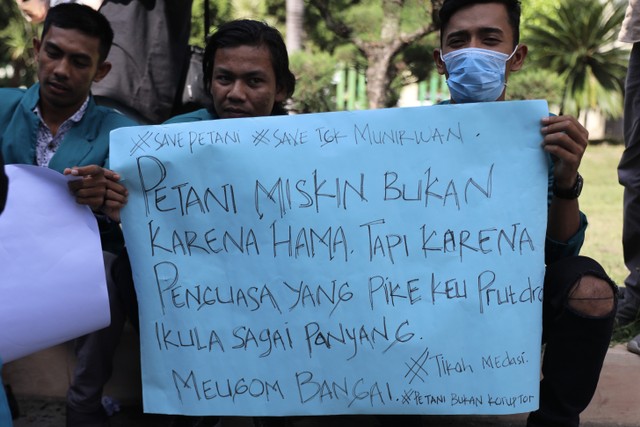 #SAVE PETANI #SAVE TGK MUNIRWAN.
PETANI MISKIN BUKAN
KARENA HAMA. TAPI KARENA
PENGUASA YANG PIKE KEU Prut dro
IKULA SAGAI PANYANG.
#Tikoh Medasi.
MEUGOM BANGAI.
#PETANI BUKAN KORUPTOR